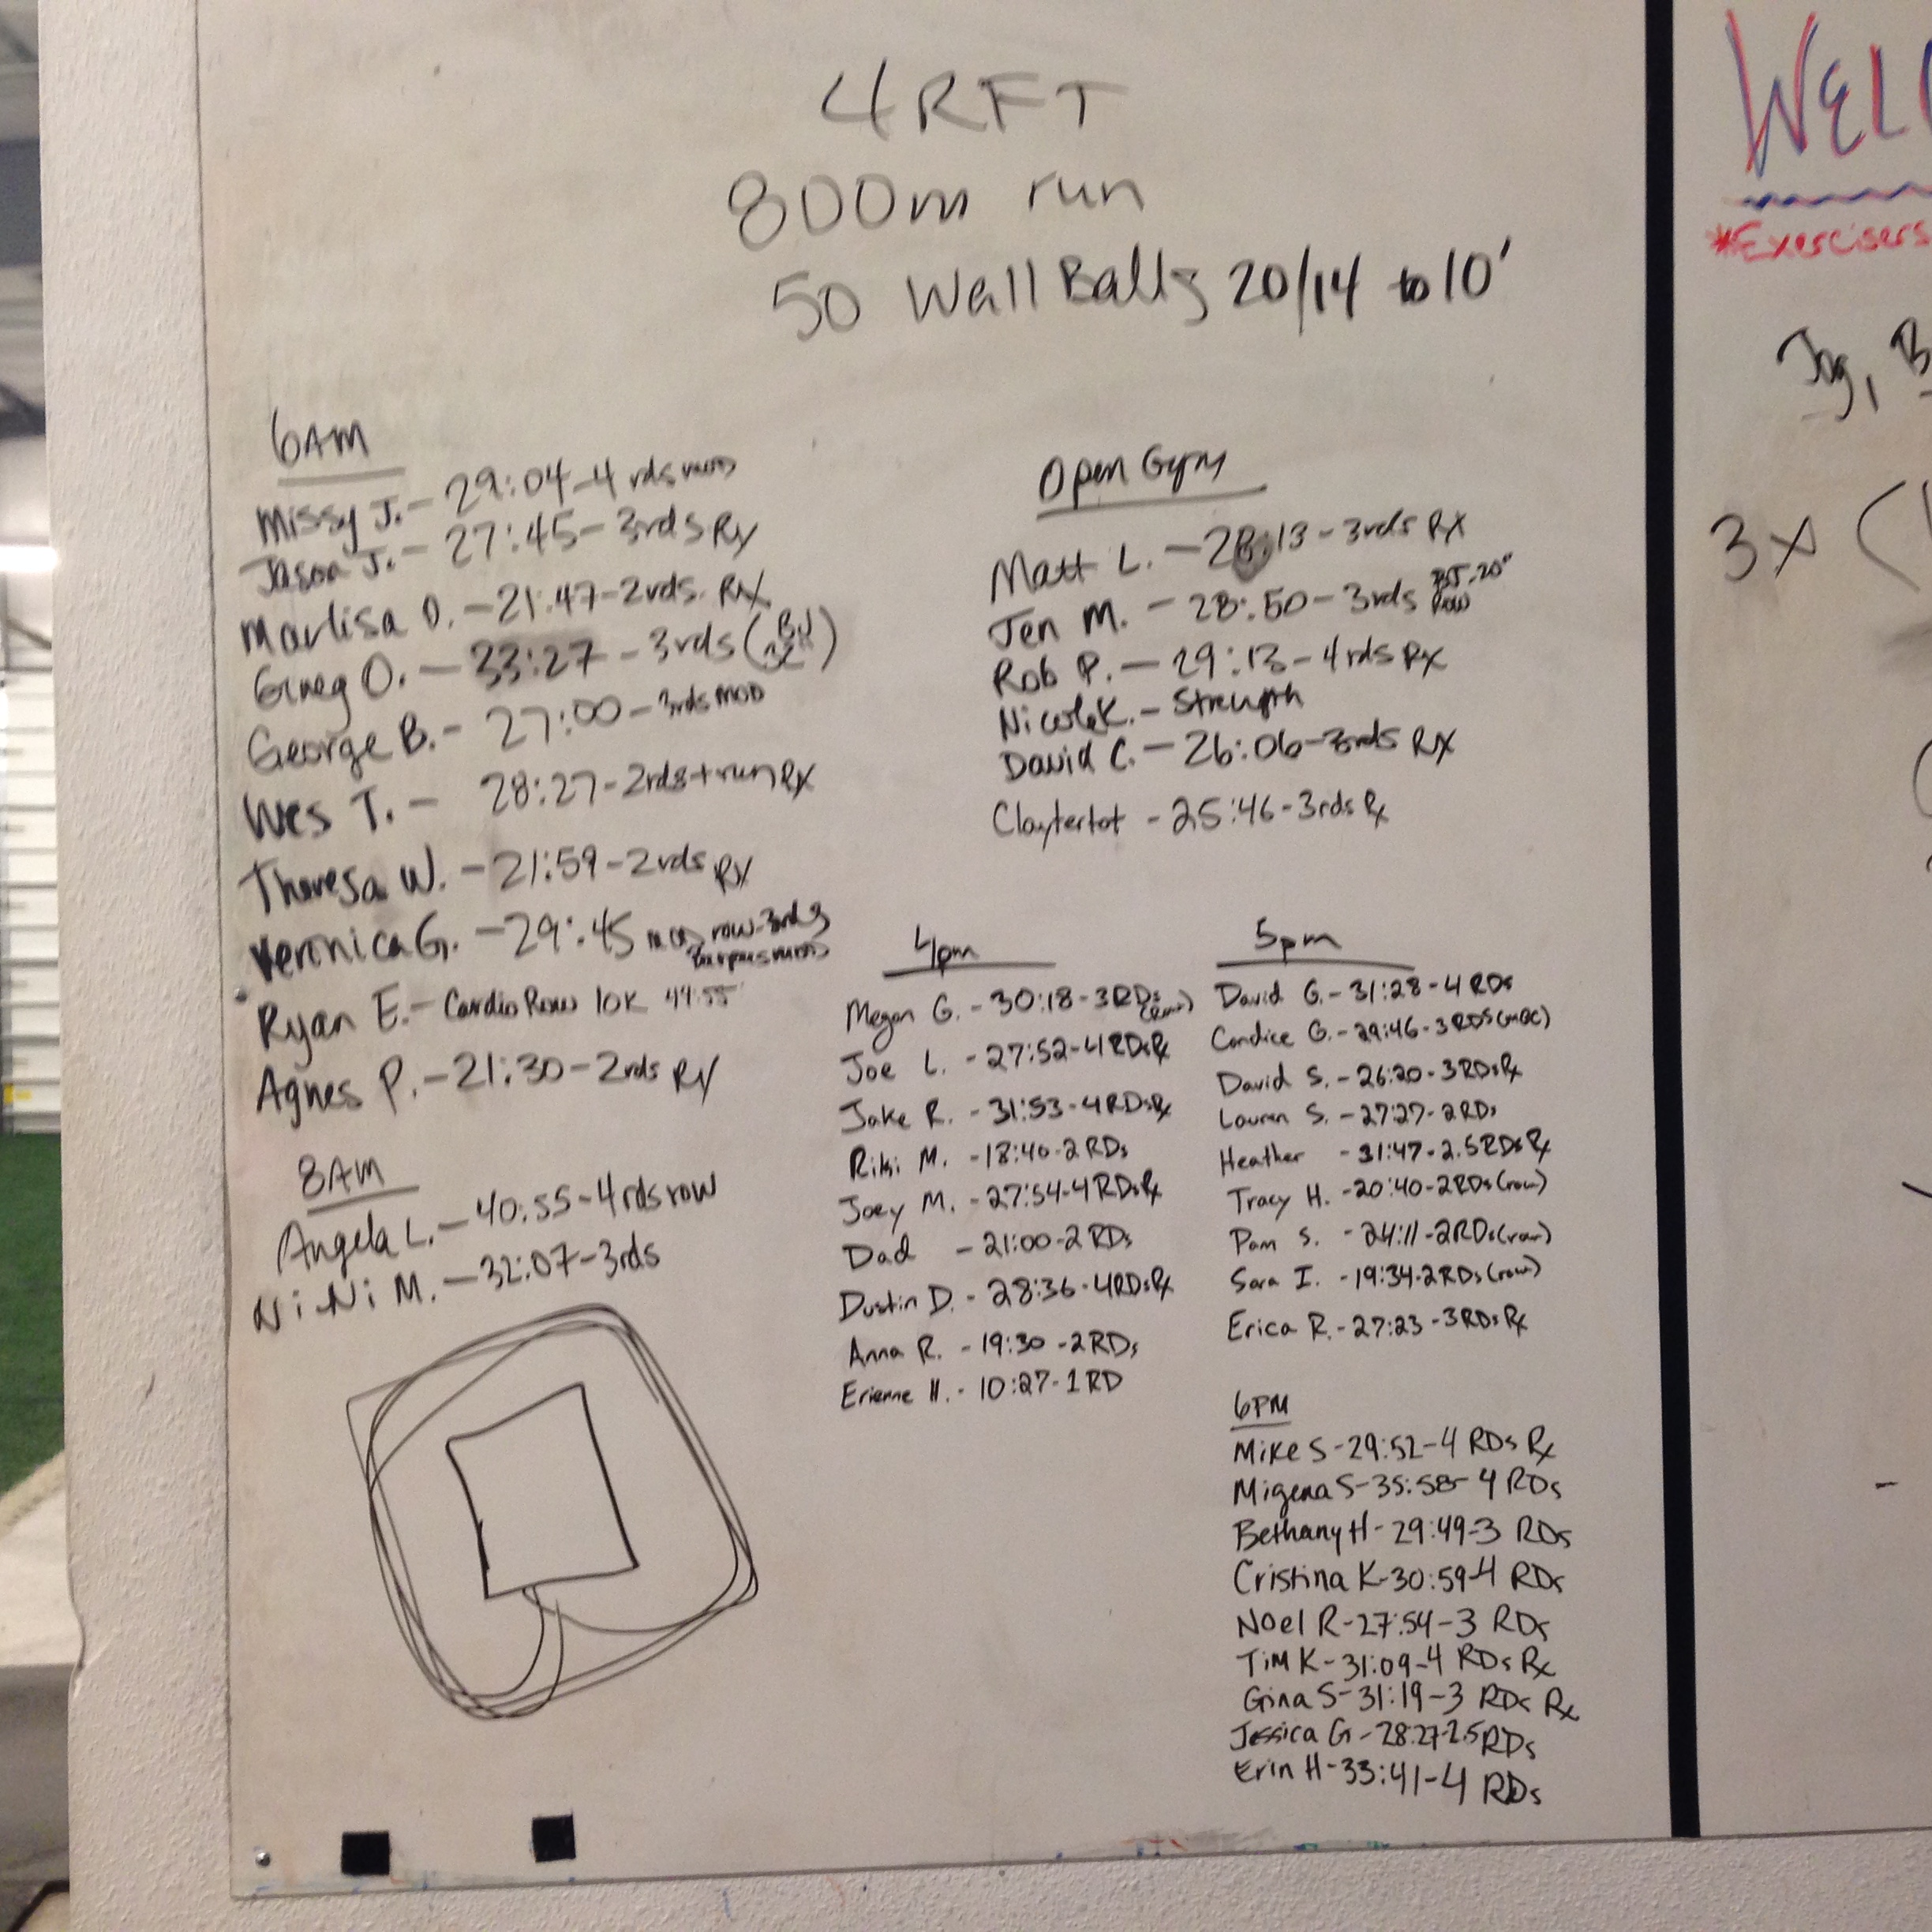 4 RFT
800m run
50 Wall Balls 20/14 to 10'
6AM
Missy J. - 29:04 - 4 rds
Jason J. - 27:45 - 3rds Rx
Marlisa O. - 21:47 - 2rds. RX
Greg O. - 33:27 - 3rds
George B. - 27:00 - 3rds MOD
Wes T. - 28:27 - 2rds + run RX
Theresa W. - 21:59 - 2rds RX
Veronica G. - 29:45 row-3rds
Ryan E. - Cardio Row 10K 44:55
Agnes P. - 21:30 - 2rds RX
8AM
Angela L. - 40:55 - 4rds row
Ni Ni M. - 32:07 - 3rds
Open Gym
Matt L. - 28:13 - 3rds RX
Jen M. - 28:50 - 3rds
Rob P. - 29:13 - 4rds RX
Nicole K. - Strength
David C. - 26:06 - 3rds RX
Claytertot - 25:46 - 3rds Rx
4pm
Megan G. - 30:18 - 3RDs
Joe L. - 27:52 - 4RDs Rx
Jake R. - 31:53 - 4RDs Rx
Riki M. - 18:40 - 2 RDs
Joey M. - 27:54 - 4 RDs Rx
Dad - 21:00 - 2 RDs
Dustin D. - 28:36 - 4RDs Rx
Anna R. - 19:30 - 2RDs
Erienne H. - 10:27 - 1 RD
5pm
David G. - 31:28 - 4 RDs
Candice G. - 29:46 - 3RDS
David S. - 26:20 - 3RDs Rx
Lauren S. - 27:27 - 2RDs
Heather - 31:47 - 2.5RDs Rx
Tracy H. - 20:40 - 2RDs (row)
Pam S. - 24:11 - 2RDs (row)
Sara I. - 19:34 - 2RDs (row)
Erica R. - 27:23 - 3RDs Rx
6PM
Mike S - 29:52 - 4 RDs Rx
Migena S - 35:58 - 4 RDs
Bethany H - 29:49 - 3 RDs
Cristina K - 30:59 - 4 RDs
Noel R - 27:54 - 3 RDs
Tim K - 31:09 - 4 RDs Rx
Gina S - 31:19 - 3 RDs Rx
Jessica G - 28:27 - 2.5 RDs
Erin H - 33:41 - 4 RDs
WEL
*Exercisers
Jog, B
3x (